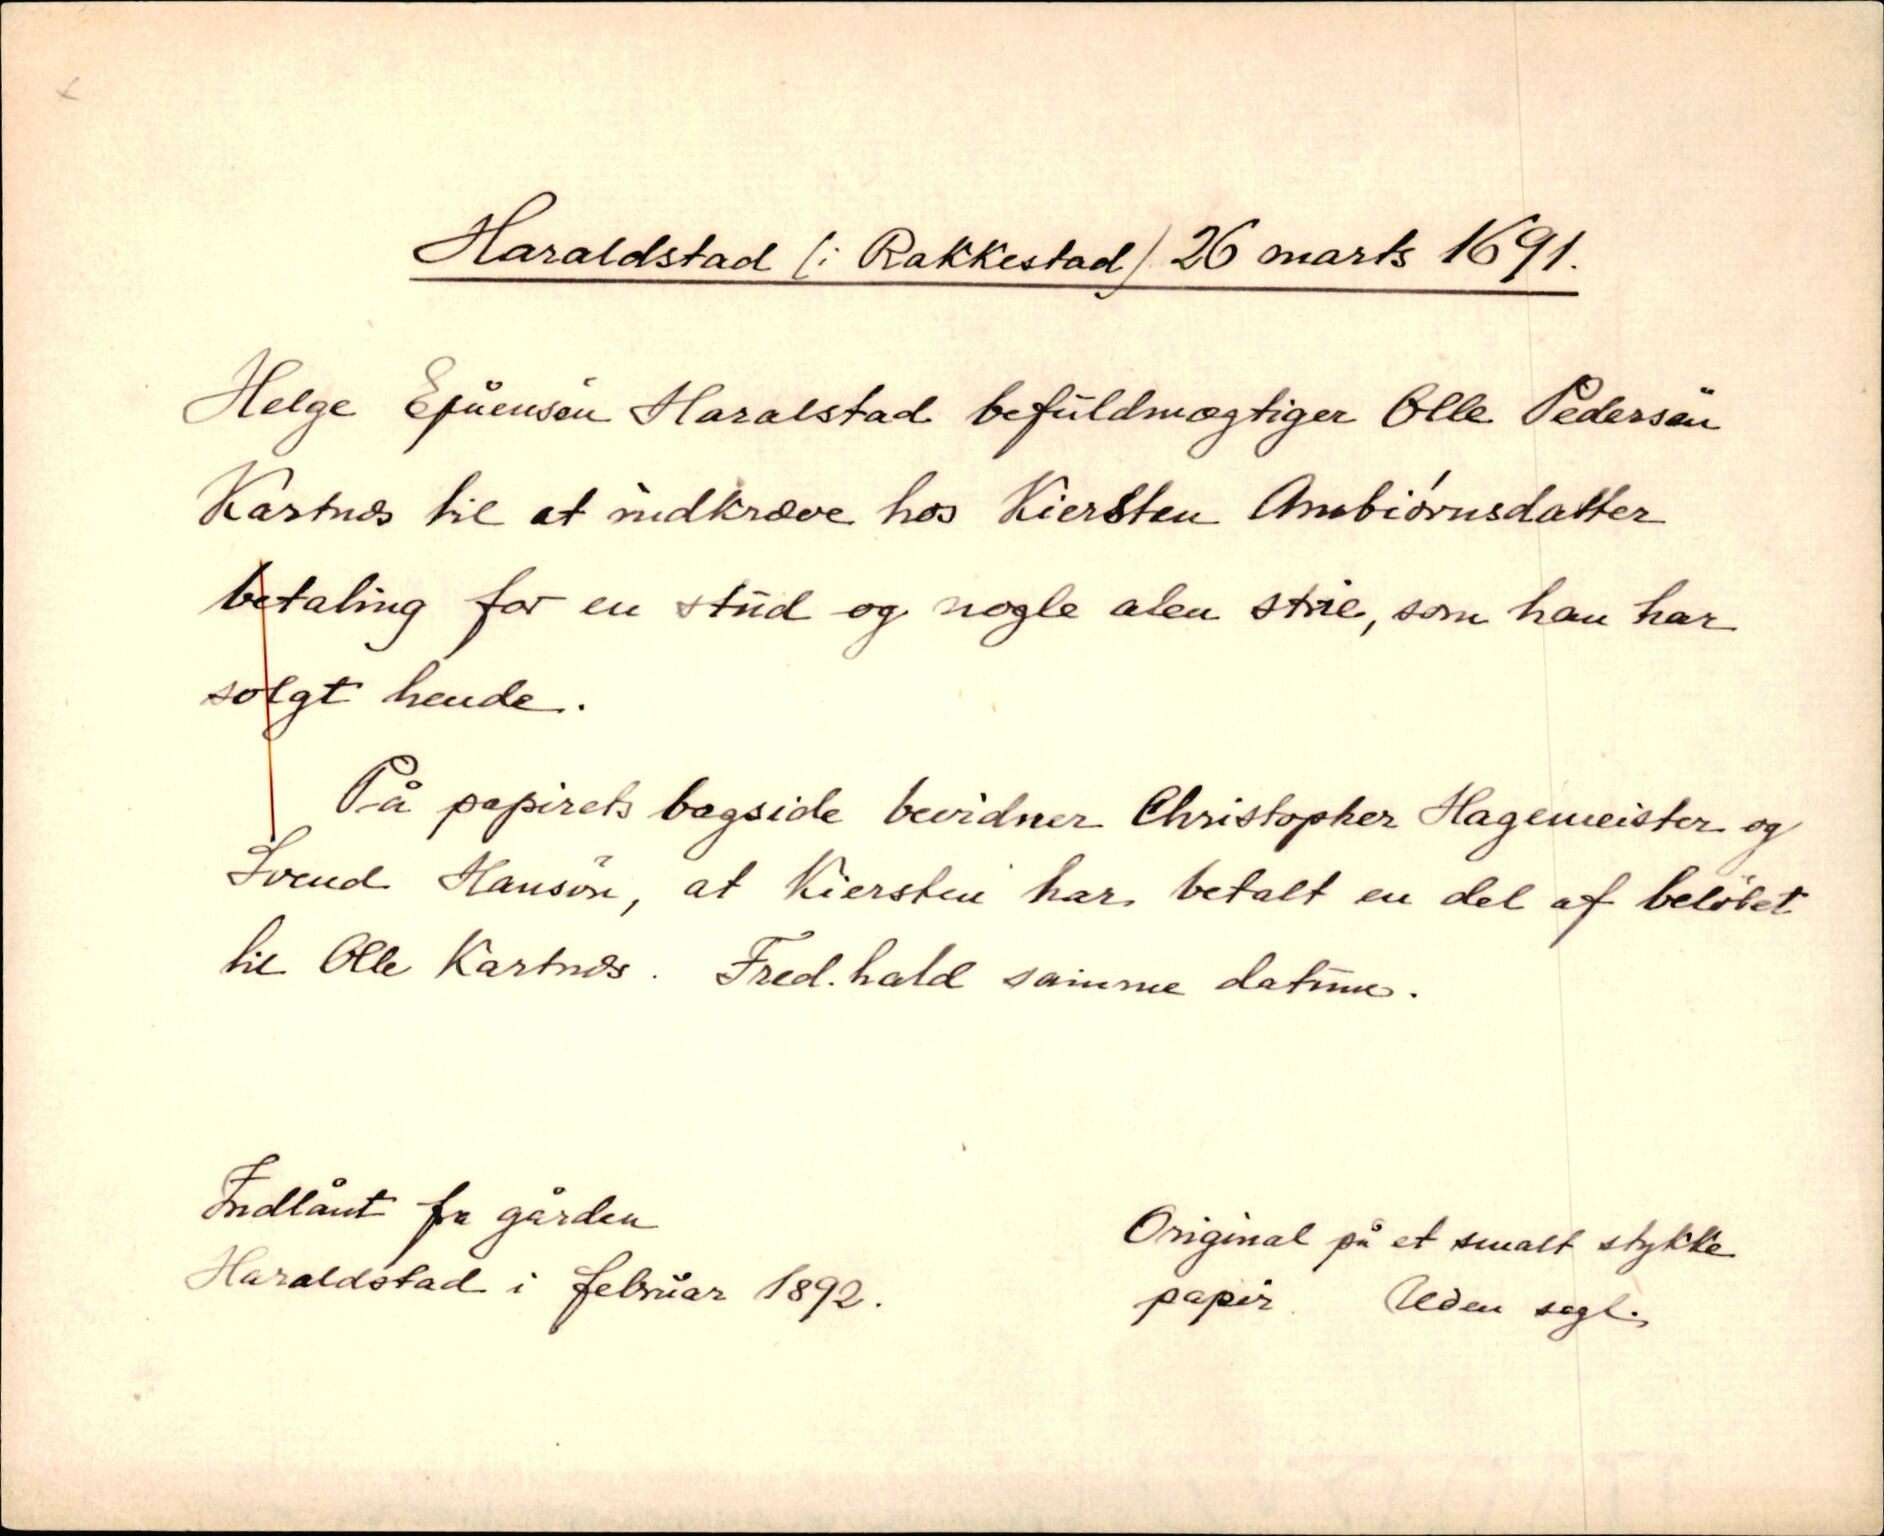 Haraldstad (i Rakkestad) 26 marts 1691.
Helge Haralstad befuldmægtiger Olle Pedersön
Kartnæs til at indkræve hos Kiersten Ambiörnsdatter
betaling for en stud og nogle alen strie, som han har
solgt hende.
På papirets bagside bevidner Christopher Hagemeister og
Svend Hansön, at Kiersten har betalt en del af belöbet
til Olle Kartnæs. Fred.hald samme datum.
Indlånt fra gården
Haraldstad i februar 1892.
Original på et smalt stykke
papir. Uden segl.